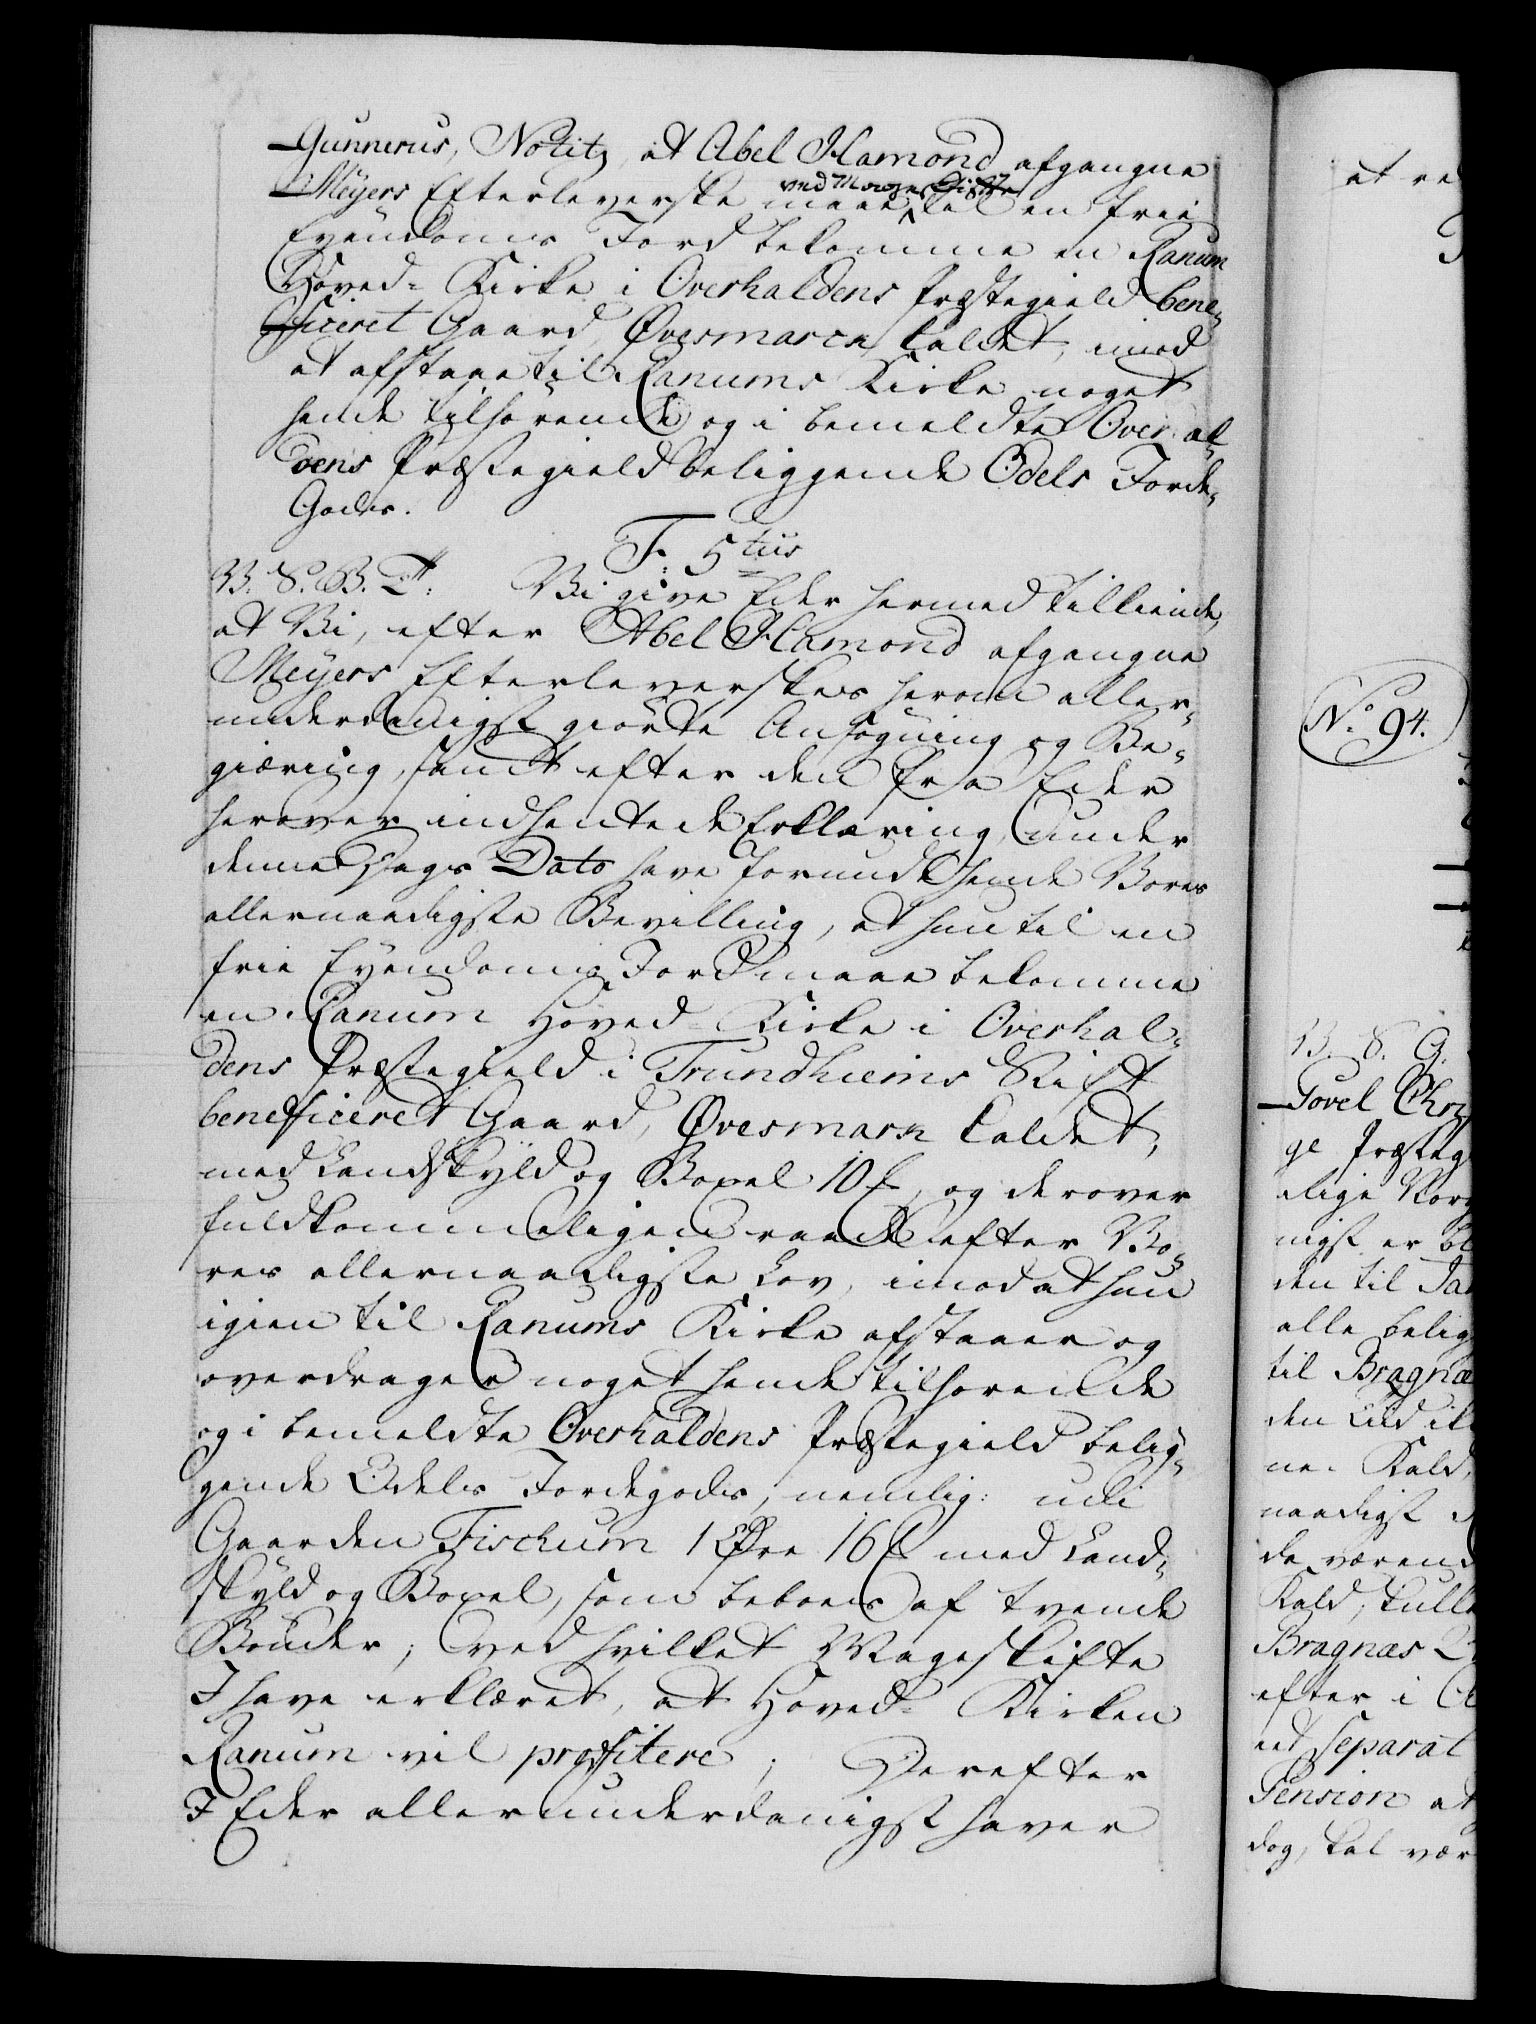 Gunnerus, Notitz, at Abel Hamond afgangne
Meyers Efterleverske maae ved Mage-Skifte til en frie
Eyendoms Jord bekomme en Ranum
Hoved-Kirke i Overhaldens Præstegield bene-
ficeret Gaard, Øvesmarck kaldet, imod
at afstaae til Ranums Kirke noget
hende tilhørende og i bemeldte Overhal-
dens Præstegield beliggende Odels Jorde-
Godes.
F: 5tus
V. S. B. T. Vi give Eder hermed tilkiende,
at Vi, efter Abel Hamond afgangne
Meyers Efterleverskes herom aller-
underdanigst giorte Ansøgning og Be-
giæring, samt efter den fra Eder
herover indhentede Erklæring, under
denne Dags Dato have forundt hende Vores
allernaadigste Bevilling, at hun til en
frie Eyendoms Jord maae bekomme
en Ranum Hoved-Kirke i Overhal-
dens Præstegield i Trundhiems Stift
beneficeret Gaard, Øvesmark kaldet,
med Landskyld og Boxel 10 , og derover
fuldkommeligen raade efter Vo-
res allernaadigste Lov, imod at hun
igien til Ranums Kirke afstaaer og
overdrager noget hende tilhørende
og i bemeldte Overhaldens Præstegield belig-
gende Odels Jordegodes, nemlig: udi
Gaarden Fischum 1 Øre 16 med Land-
skyld og Boxel, som beboes af tvende
Bønder; ved hvilket Mageskifte
I have erklæret, at Hoved-Kirken
Ranum vil profitere; Derefter
I Eder allerunderdanigst haver
at
No. 94.
V. S. G.
Povel Chr
ge Præsteg
elige Nor
nigst er
den til
alle belig
til Bragnæ
den
ne Kald,
naadigst
de værend
Kald,
Bragnæs
efter i
et separat
Pension at
dog, skal vær